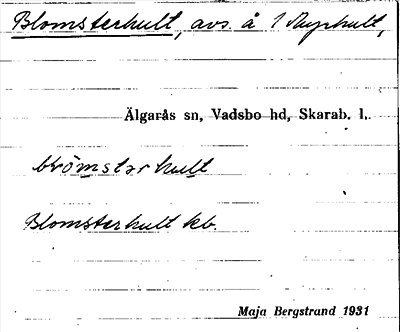 Blomsterhult, avs. å 1 Myrhult,
Älgarås sn, Vadsbo hd, Skarab. l.
blω̈mstər hult
Blomsterhult kb.
Maja Bergstrand 1931